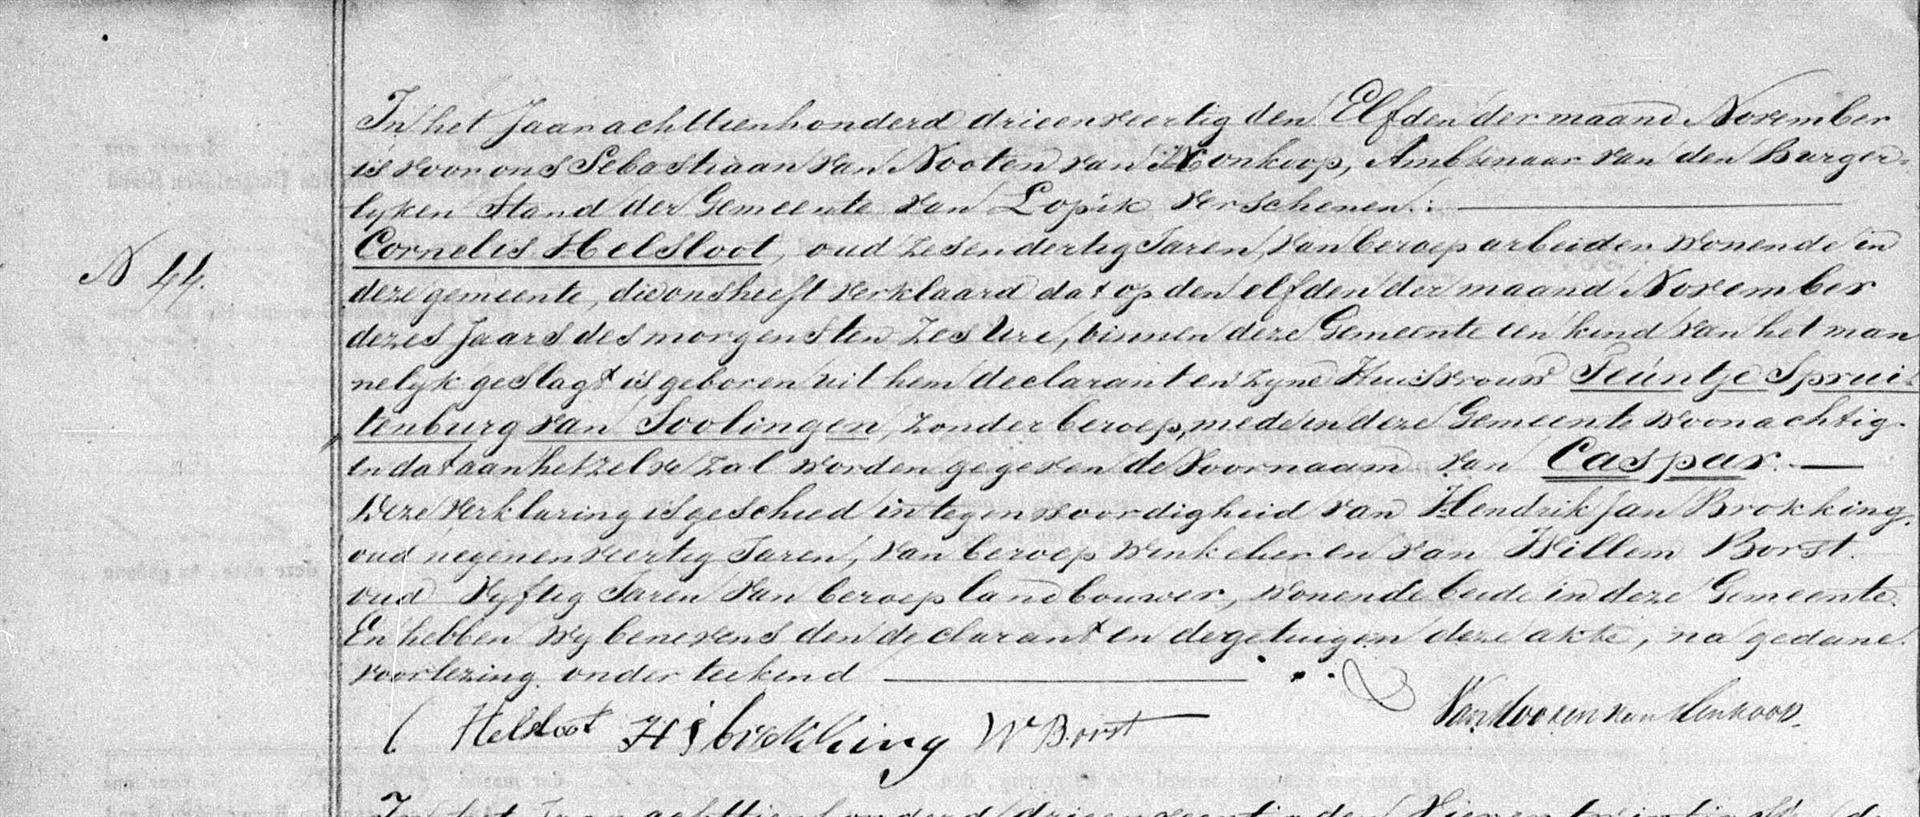 In het Jaar achttienhonderd drieenveertig den Elfden der maand November
is voor ons Sebastiaan van Nooten van Honkoop, Ambtenaar van den Burger-
lyken Stand der Gemeente van Lopik verschenen:
Cornelis Helsloot, oud zesendertig Jaren, van beroep arbeider wonende in
N 44.
deze gemeente, die ons heeft verklaard dat op den elfden der maand November
dezes Jaars des morgens ten zes Ure, binnen deze Gemeente een kind van het man
nelyk geslagt is geboren uit hem declarant en zyne Huisvrouw Teuntje Sprui-
tenburg van Soolingen, zonder beroep, mede in deze Gemeente woonachtig.
en dat aan hetzelve zal worden gegeven de Voornaam van Caspar.
Deze verklaring is geschied in tegenwoordigheid van Hendrik Jan Brokking,
oud negenenveertig Jaren, van beroep winkelier en van Willem Borst.
oud vyftig Jaren van beroep landbouwer, wonende beide in deze Gemeente.
En hebben wy benevens den declarant en de getuigen deze akte, na gedane
voorlezing onderteekend
C Helsloot H J brokking W Borst Van Nooten van Honkoop
In het Jaar achttienhonderd drieenveertig den Vierentwintigst